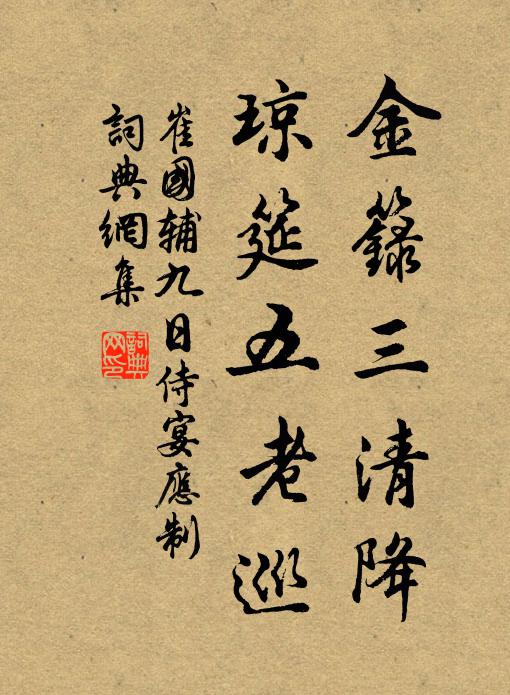 金籙三清降
琼筵五老巡
崔國輔九日侍宴應制
詞典網集
詞典
网印